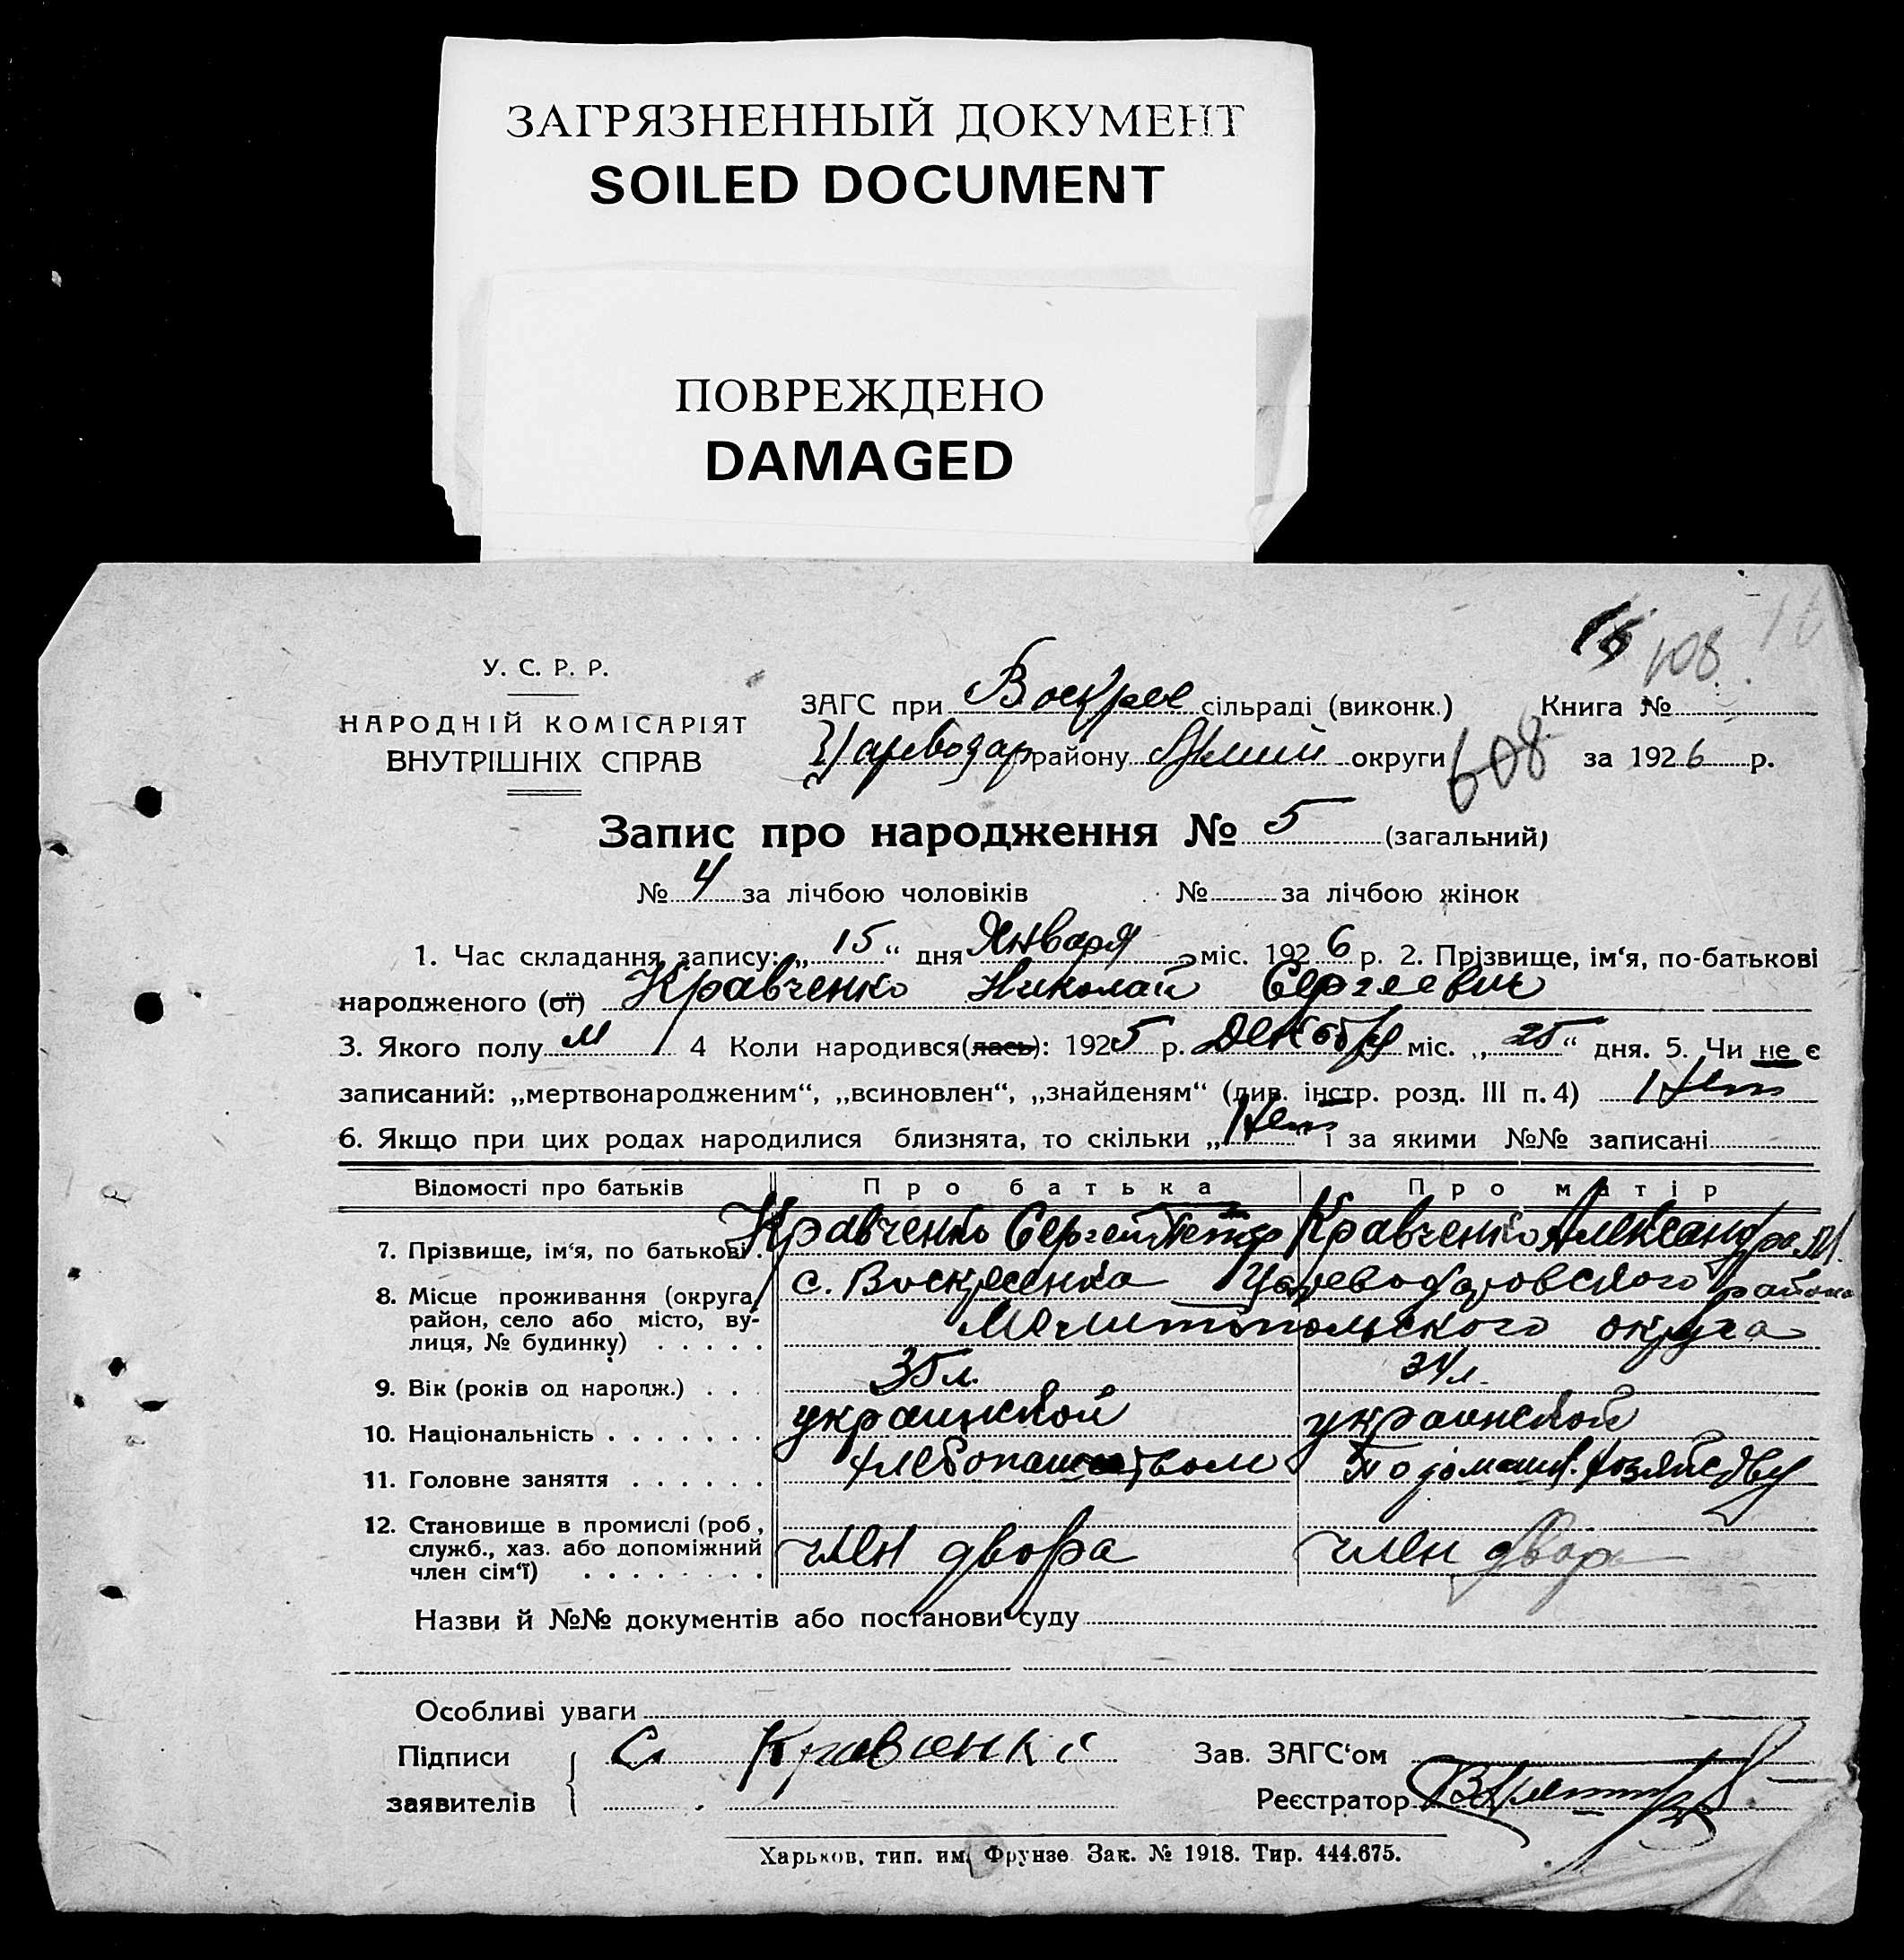 ЗАГРЯЗНЕННЫЙ ДОКУМЕНТ
SOILED DOCUMENT
ПОВРЕЖДЕНО
DAMAGED
108
У. С. Р. Р.
НАРОДНІЙ КОМІСАРІЯТ
ВНУТРІШНІХ СПРАВ
ЗАГС при Воскрес сільраді (виконк.) Книга №
Цареводар району округи 608 за 1926 р.
Запис про народження № 5 (загальний)
№ 4 за лічбою чоловіків № за лічбою жінок
1. Час складання запису: „15“ дня Января міс. 1926 р. 2. Прізвище, ім‘я, по-батькові
народженого (ої) Кравченко Николай Сергеевич
3. Якого полу м 4 Коли народився(лась): 1925 р. Декабря міс. „25“ дня. 5. Чи не є
записаний: „мертвонародженим“, „всиновлен“, „знайденям“ (див. інстр. розд. III п. 4) Нет
6. Якщо при цих родах народилися близнята, то скільки „Нет“ і за якими №№ записані
Відомості про батьків Про батька Про матір
7. Прізвище, ім‘я, по батькові Кравченко Сергей Петр Кравченко Александра М.
8. Місце проживання (округа, район, село або місто, ву-
лиця, № будинку) с. Воскресенка Цареводаровского района
Мелитопольского округа
9. Вік (років од народж.) 35 л. 34 л.
10. Національність украинской украинской
11. Головне заняття хлебопашеством По домашн. хозяйству
12. Становище в промислі (роб, служб., хаз. або допоміжний
член сім‘ї) член двора член двора
Назви й №№ документів або постанови суду
Особливі уваги
Підписи С. Кравченко Зав. ЗАГС‘ом
заявителів Реєстратор
Харьков, тип. им. Фрунзе Зак. № 1918. Тир. 444.675.